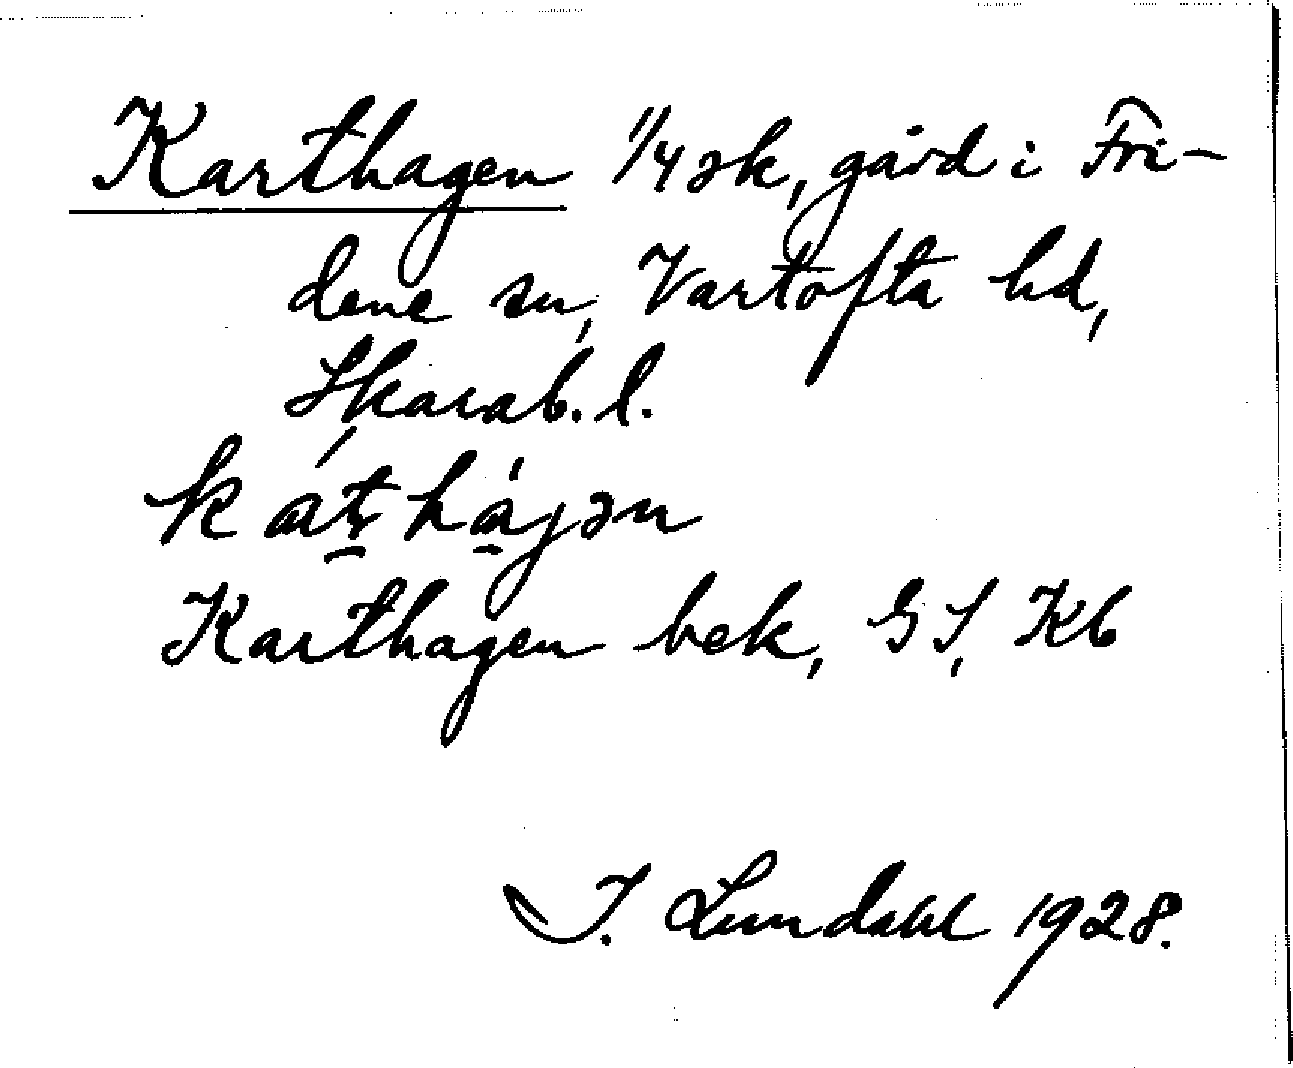 Karthagen 1/4 sk, gård i Fri-
dene sn, Vartofta hd,
Skarab. l.
kaʈhájən
Karthagen bek, GS, Kb
I. Lundahl 1928.